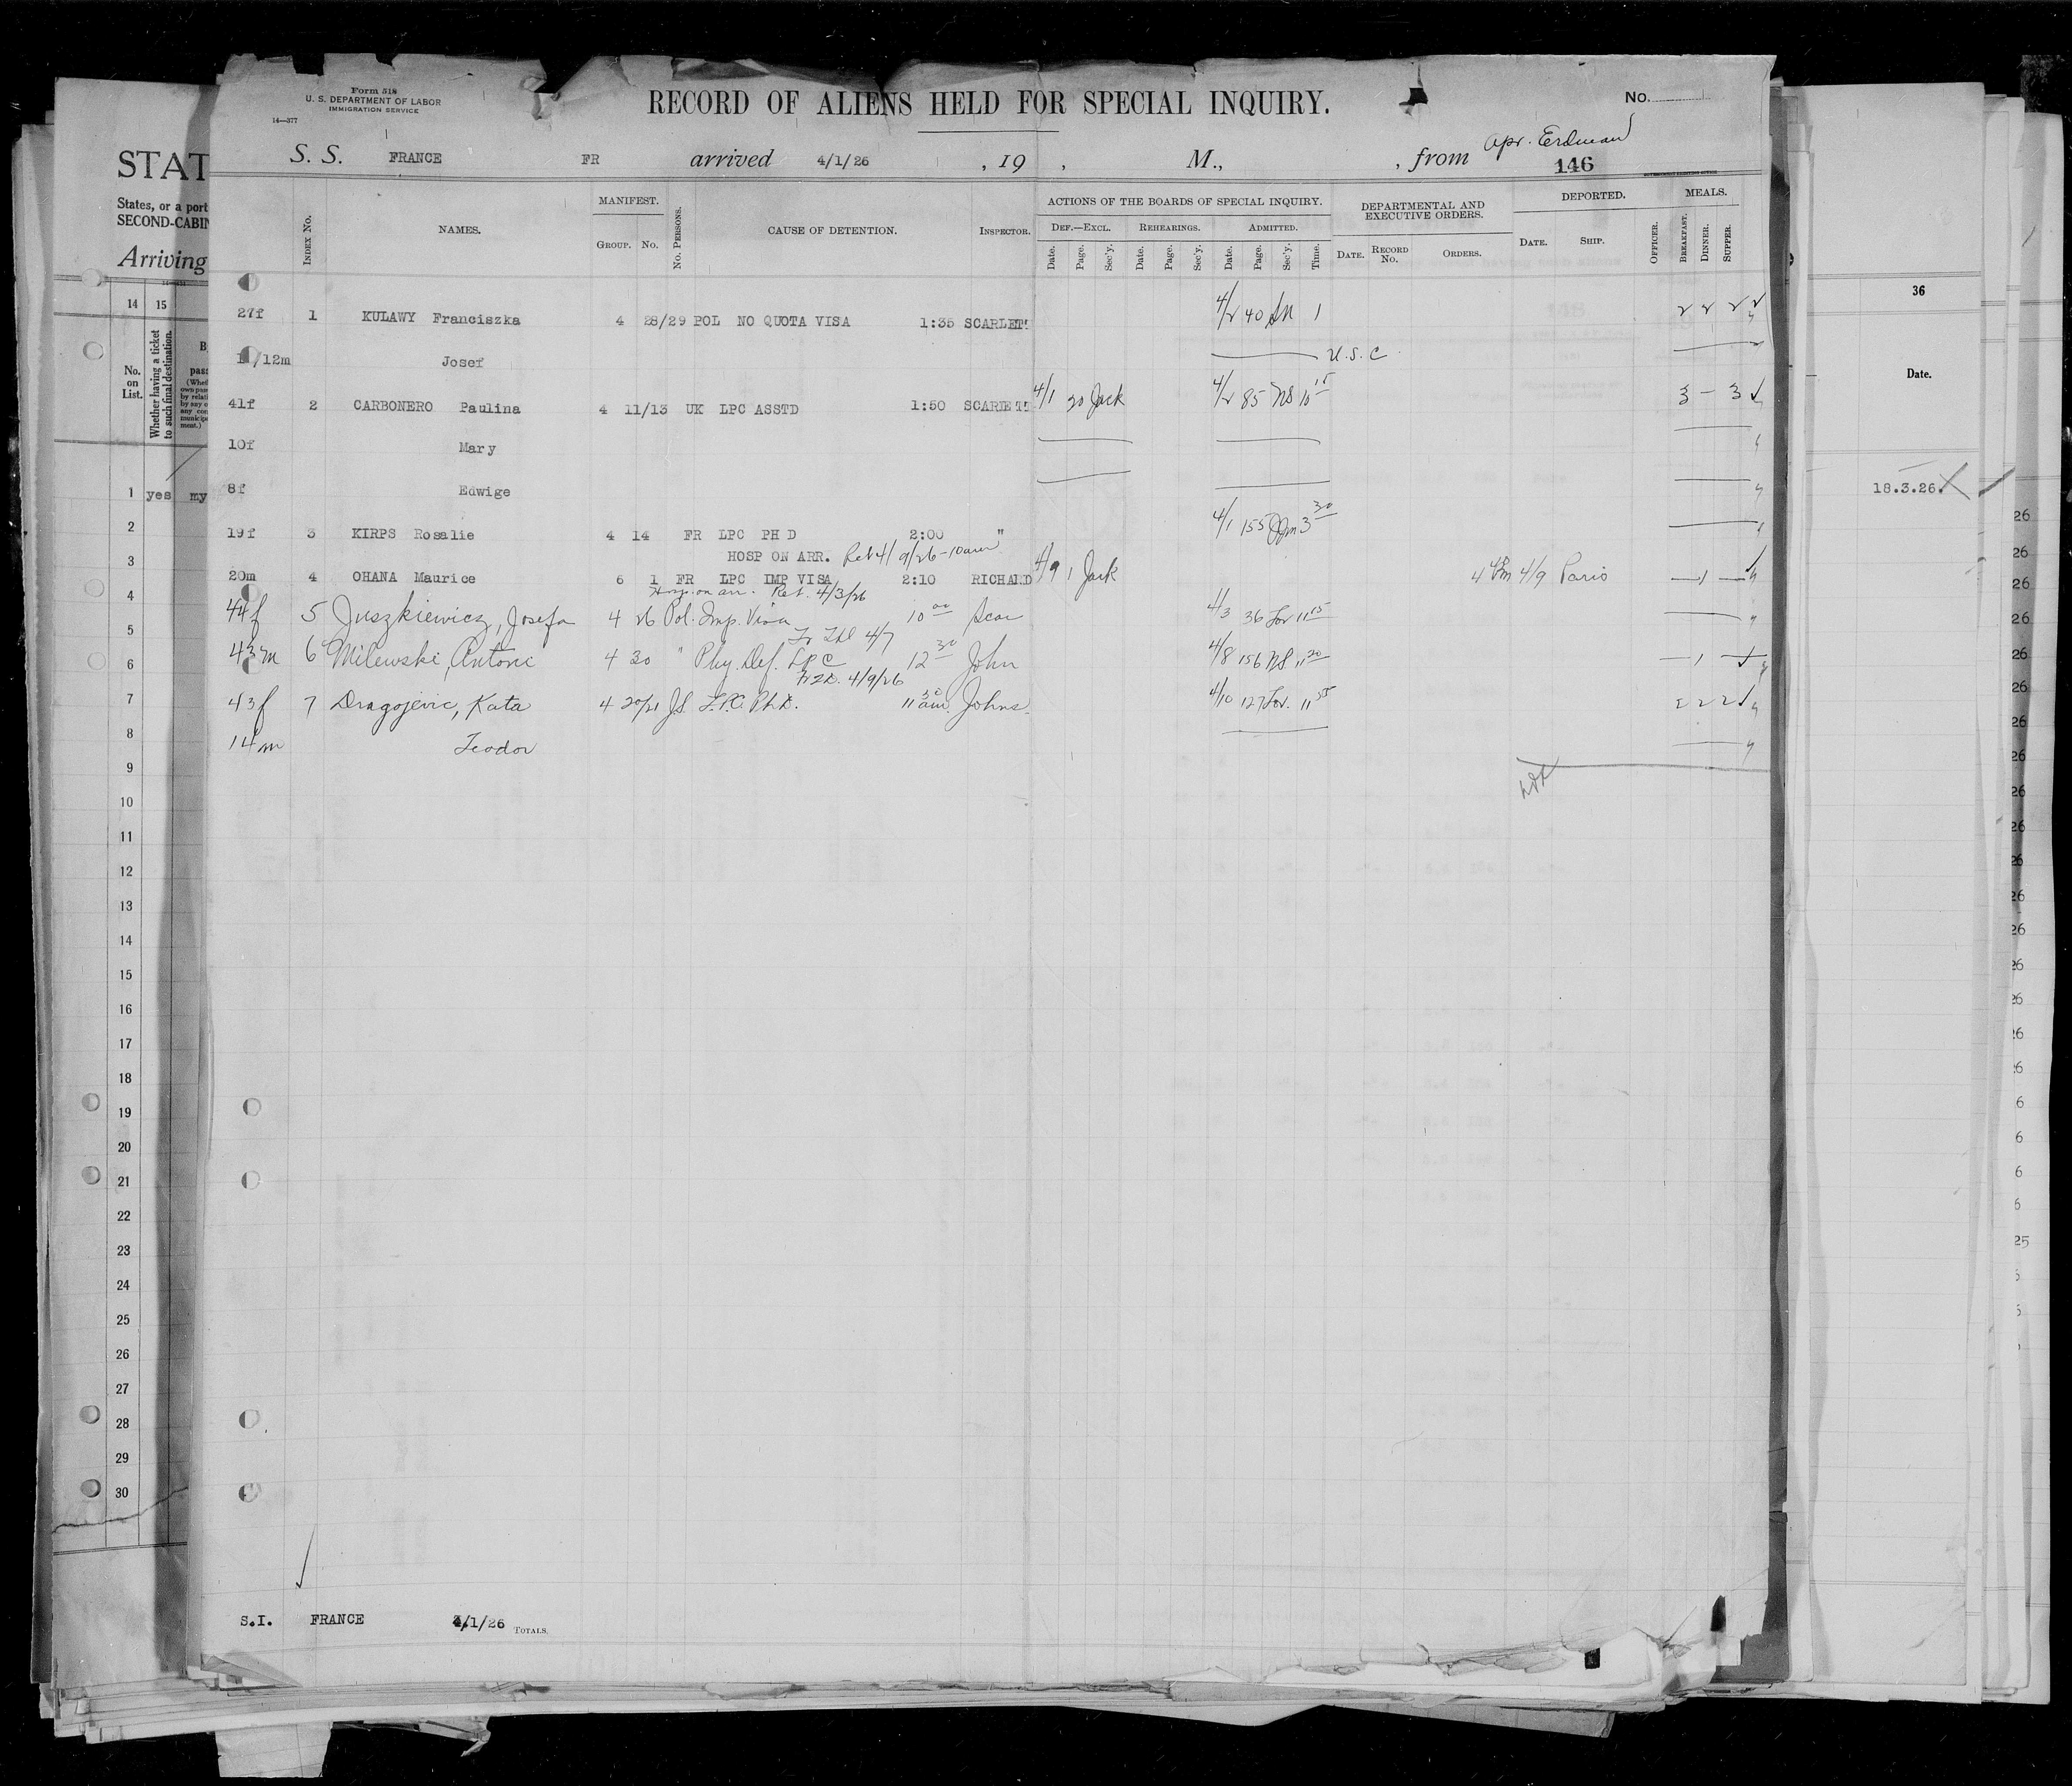 Form 518
U. S. DEPARTMENT OF LABOR
IMMIGRATION SERVICE
14—377
RECORD OF ALIENS HELD FOR SPECIAL INQUIRY.
No.
S. S. FRANCE FR arrived 4/1/26 , 19 , M., , from Apr. Erdman
146
INDEX No. NAMES. MANIFEST. GROUP. No. No. PERSONS. CAUSE OF DETENTION. INSPECTOR. ACTIONS OF THE BOARDS OF SPECIAL INQUIRY. DEPARTMENTAL AND EXECUTIVE ORDERS. DEPORTED. MEALS.
DEF.—EXCL. REHEARINGS. ADMITTED.
Date. Page. Sec'y. Date. Page. Sec'y. Date. Page. Sec'y. Time. DATE. RECORD No. ORDERS. DATE. SHIP. OFFICER. BREAKFAST. DINNER. SUPPER.
27f 1 KULAWY Franciszka 4 28/29 POL NO QUOTA VISA 1:35 SCARLETT 4/2 40 1 2 2 2
/12m Josef U.S.C
41f 2 CARBONERO Paulina 4 11/13 UK LPC ASSTD 1:50 SCARLETT 4/1 20 Jack 4/2 85 NS 10 15 3 — 3
10f Mary
8f Edwige
19f 3 KIRPS Rosalie 4 14 FR LPC PH D 2:00 " 4/1 155 3 30
HOSP ON ARR. Ret 4/9/26 - 10 am
20m 4 OHANA Maurice 6 1 FR LPC IMP VISA 2:10 RICHARD 4/9 1 Jack 4/9 Paris — 1 —
Hosp. on arr. Ret. 4/3/26
44f 5 Juszkiewicz, Josefa 4 26 Pol. Imp. Visa 10 00 Scar 4/3 36 Lov 11 15
4/7
43m 6 Milewski, Antoni 4 30 " Phy. Def. LPC 12 30 John 4/8 156 NS 11 20 — 1
4/9/26
43f 7 Dragojevic, Kata 4 20/21 J.S. L.P.C. Ph.D. 11 30 am. Johns. 4/10 127 Lov. 11 55 2 2 2
14m Teodor
S.I. FRANCE 4/1/26 TOTALS.
STAT
States, or a port
SECOND-CABIN
Arriving
14 15
No. on List.
Whether having a ticket to such final destination.
1 yes my
2
3
4
5
6
7
8
9
10
11
12
13
14
15
16
17
18
19
20
21
22
23
24
25
26
27
28
29
30
36
Date.
18.3.26.